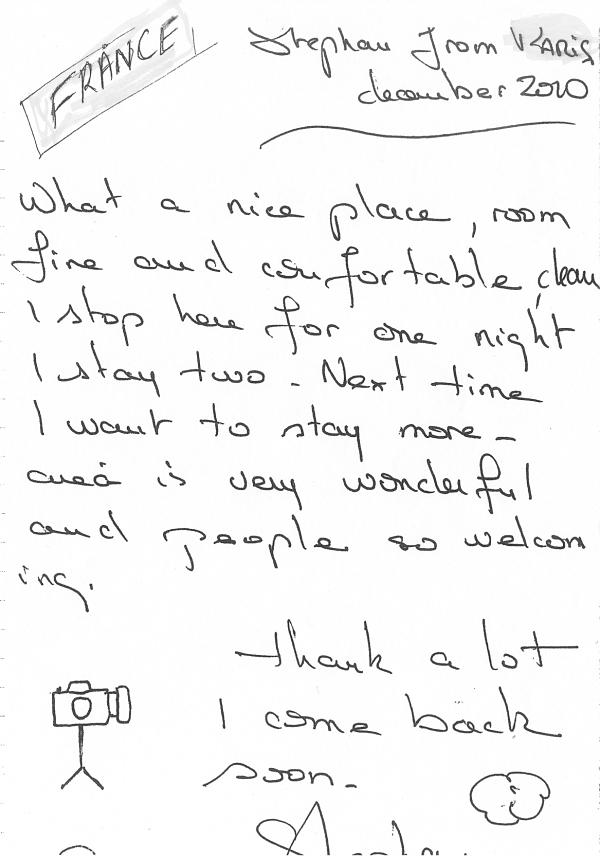 FRANCE
Stephan from PARIS
december 2010
What a nice place, room
fine and comfortable, clean
I stop here for one night
I stay two. Next time
I want to stay more -
area is very wonderful
and people so welcom
ing.
thank a lot
I come back
soon.